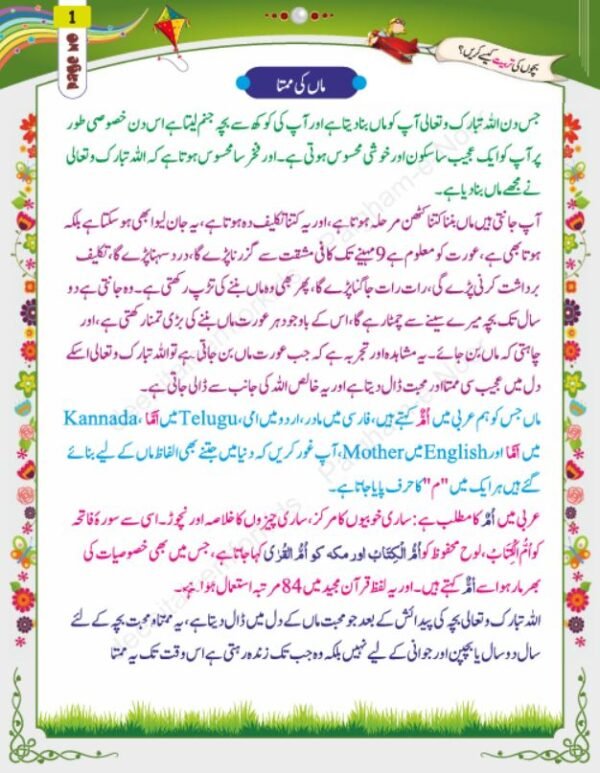 1
Page No
بچوں کی تربیت کیسے کریں؟
ماں کی ممتا
جس دن اللہ تبارک و تعالی آپ کو ماں بنا دیتا ہے اور آپ کی کوکھ سے بچہ جنم لیتا ہے اس دن خصوصی طور
پر آپ کو ایک عجیب سا سکون اور خوشی محسوس ہوتی ہے۔ اور فخر سا محسوس ہوتا ہے کہ اللہ تبارک و تعالی
نے مجھے ماں بنا دیا ہے۔
آپ جانتی ہیں ماں بننا کتنا کٹھن مرحلہ ہوتا ہے، اور یہ کتنا تکلیف دہ ہوتا ہے، یہ جان لیوا بھی ہو سکتا ہے بلکہ
ہوتا بھی ہے، عورت کو معلوم ہے 9 مہینے تک کافی مشقت سے گزرنا پڑے گا، درد سہنا پڑے گا، تکلیف
برداشت کرنی پڑے گی، رات رات جاگنا پڑے گا، پھر بھی وہ ماں بننے کی تڑپ رکھتی ہے۔ وہ جانتی ہے دو
سال تک بچہ میرے سینے سے چمٹا رہے گا، اس کے باوجود ہر عورت ماں بننے کی بڑی تمنا رکھتی ہے، اور
چاہتی کہ ماں بن جائے۔ یہ مشاہدہ اور تجربہ ہے کہ جب عورت ماں بن جاتی ہے تو اللہ تبارک و تعالی اسکے
دل میں عجیب سی ممتا اور محبت ڈال دیتا ہے اور یہ خالص اللہ کی جانب سے ڈالی جاتی ہے۔
ماں جس کو ہم عربی میں اُمٌّ کہتے ہیں، فارسی میں مادر، اردو میں امی، Telugu میں اَمَّا، Kannada
میں اَمَّا اور English میں Mother، آپ غور کریں کہ دنیا میں جتنے بھی الفاظ ماں کے لیے بنائے
گئے ہیں ہر ایک میں "م" کا حرف پایا جاتا ہے۔
عربی میں اُمٌّ کا مطلب ہے: ساری خوبیوں کا مرکز، ساری چیزوں کا خلاصہ اور نچوڑ۔ اسی سے سورۂ فاتحہ
کو اُمُّ الْکِتَابُ، لوح محفوظ کو اُمُّ الْکِتَابُ اور مکہ کو اُمُّ الْقُرٰی کہا جاتا ہے، جس میں بھی خصوصیات کی
بھر مار ہوا سے اُمٌّ کہتے ہیں۔ اور یہ لفظ قرآن مجید میں 84 مرتبہ استعمال ہوا ہے۔
اللہ تبارک و تعالی بچہ کی پیدائش کے بعد جو محبت ماں کے دل میں ڈال دیتا ہے، یہ ممتا و محبت بچہ کے لئے
سال دو سال یا بچپن اور جوانی کے لیے نہیں بلکہ وہ جب تک زندہ رہتی ہے اس وقت تک یہ ممتا